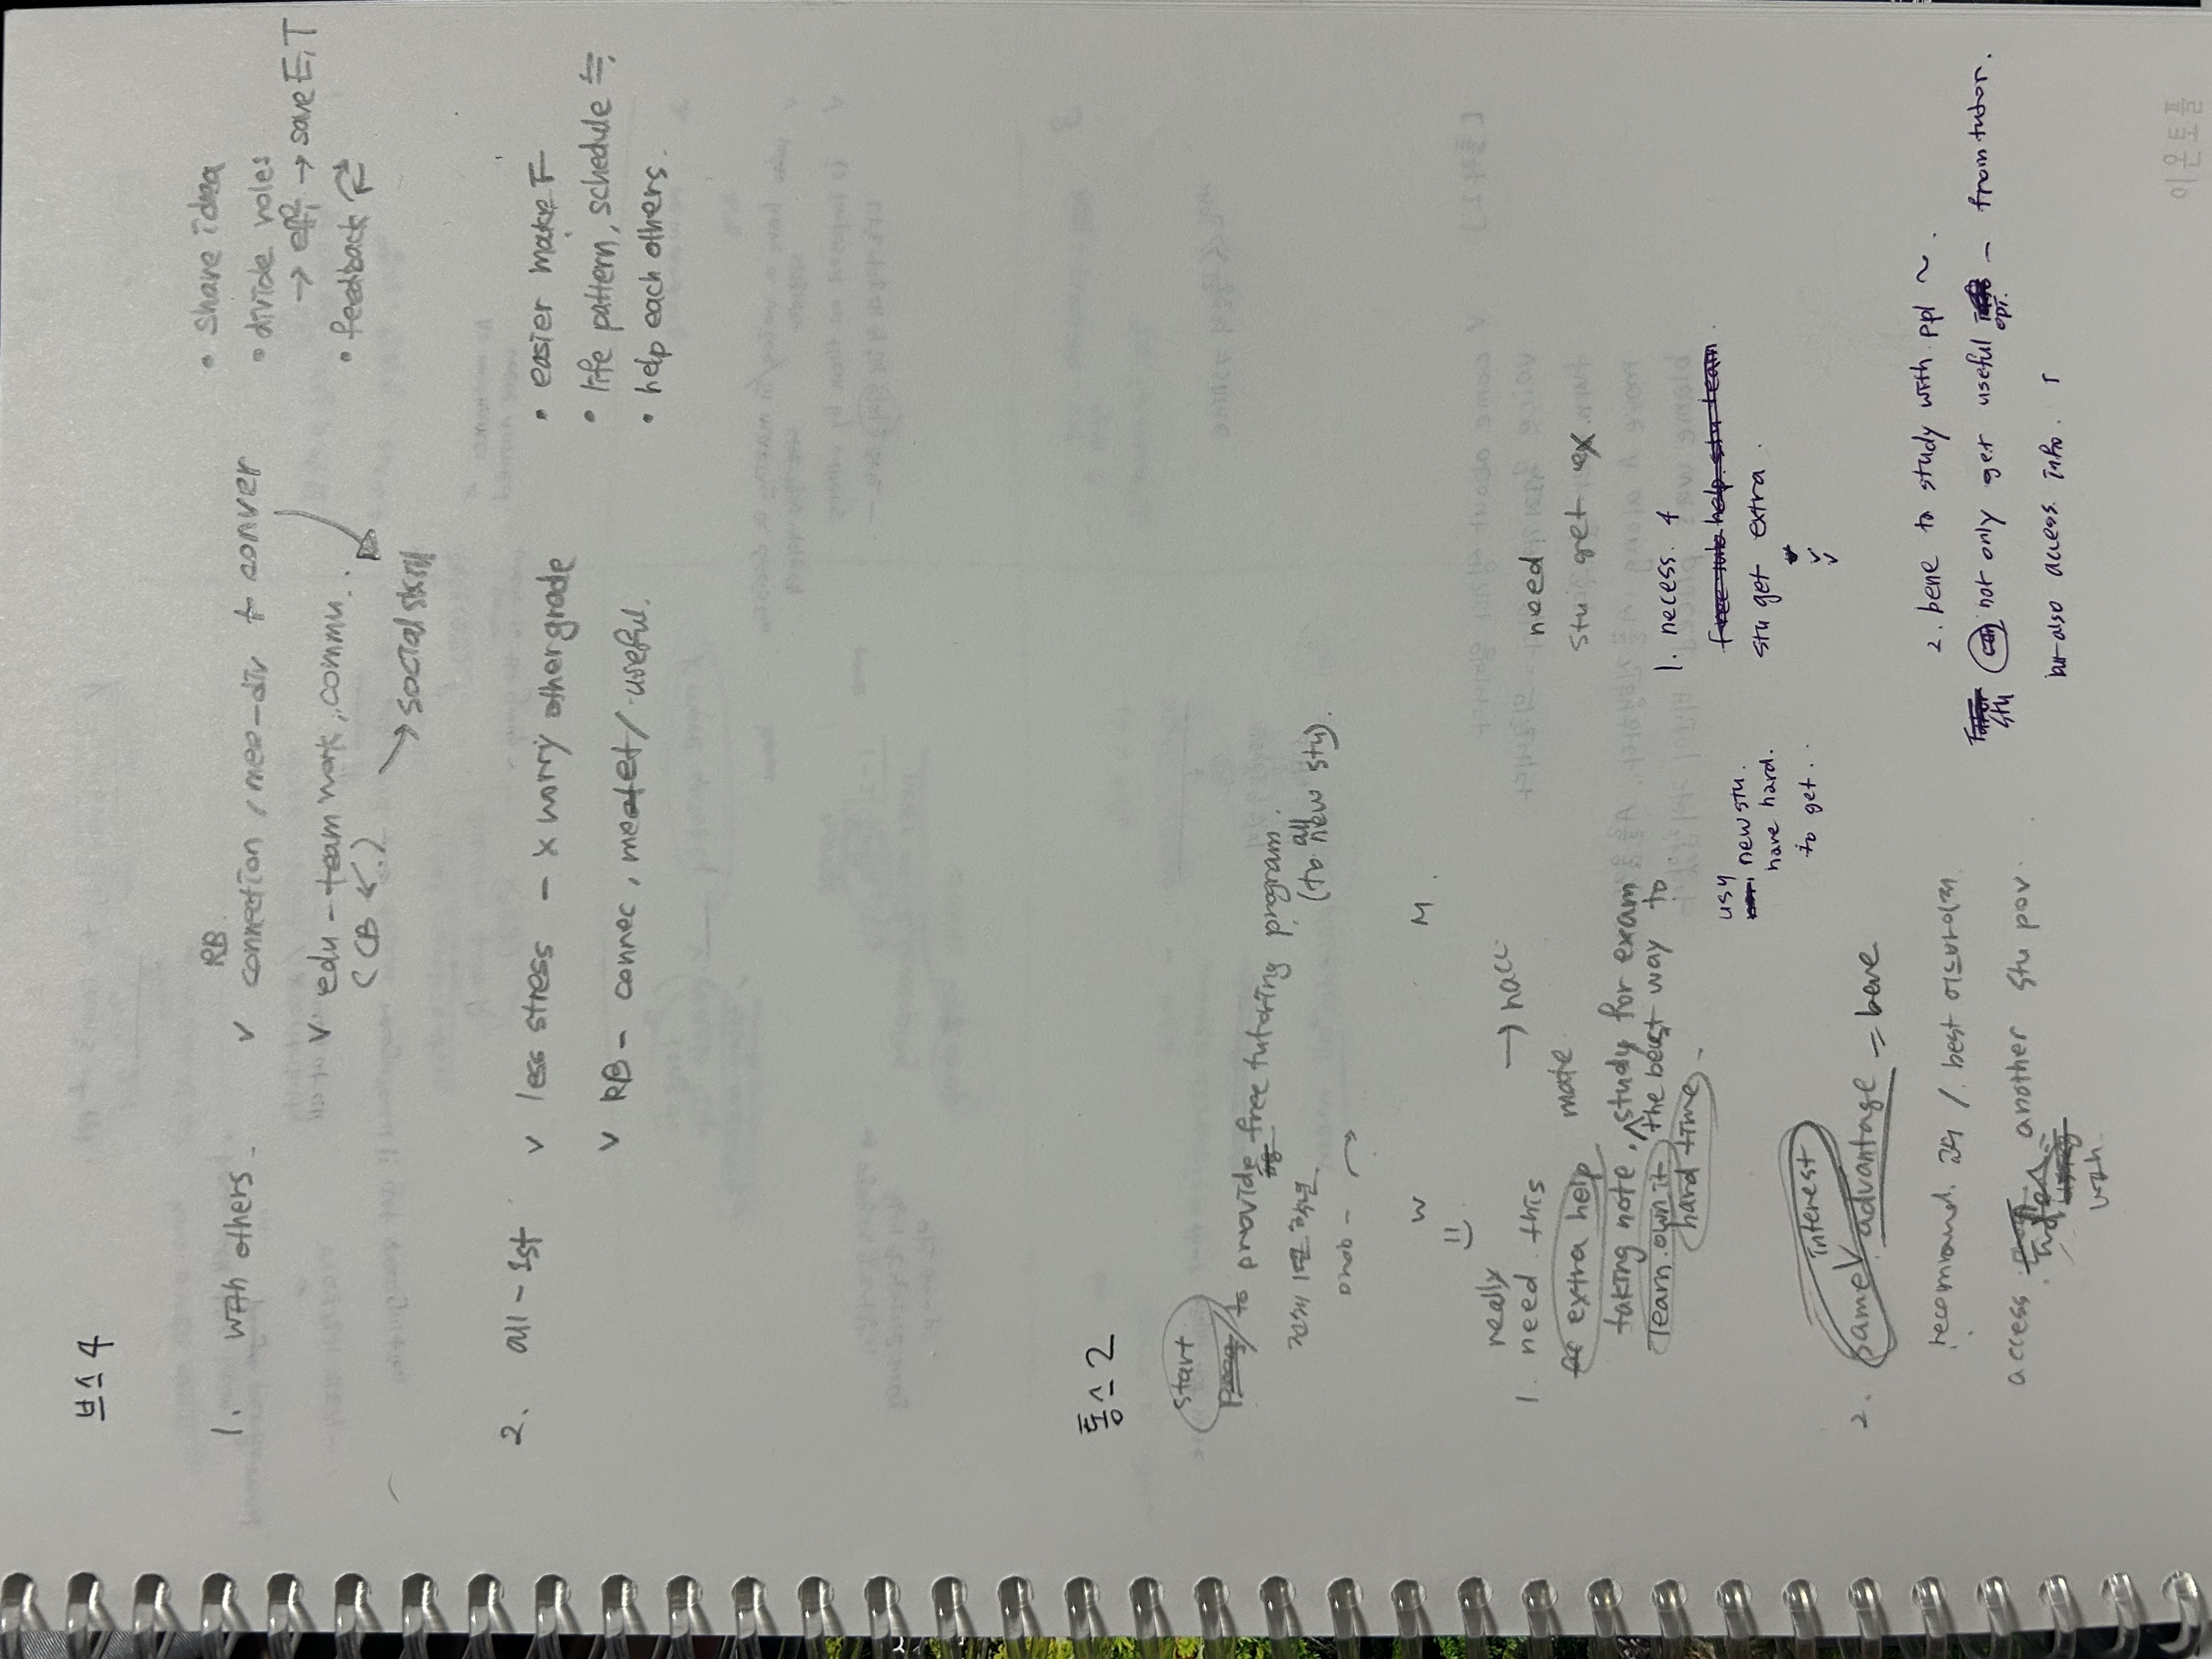 브스 4
1. with others.
RB
v connection / mee-div to conver
v edu - team work, commu.
(CB ↙)
→ social skill
• share idea
• divide roles
→ eff → save E, T
• feedback ⇄
2. all - 1st
v less stress - x worry other grade
v RB - connec, meet / useful.
• easier make F
• life pattern, schedule ≒
• help each others.
통스 2
start
to provide free tutoring program.
(to all new stu).
전체 1면 학년
W M.
1. really need this → nacc
extra help more
taking note, study for exam
learn own it the best way to
hard time.
need
stu get ex
1. necess. 4
free tuto help stu learn
stu get extra.
usy new stu.
have hard.
to get.
2. interest
same advantage = bene
recommand. / best
access another stu pov.
with
2. bene to study with ppl ~.
stu can not only get useful opi. - from tutor.
but also access info.